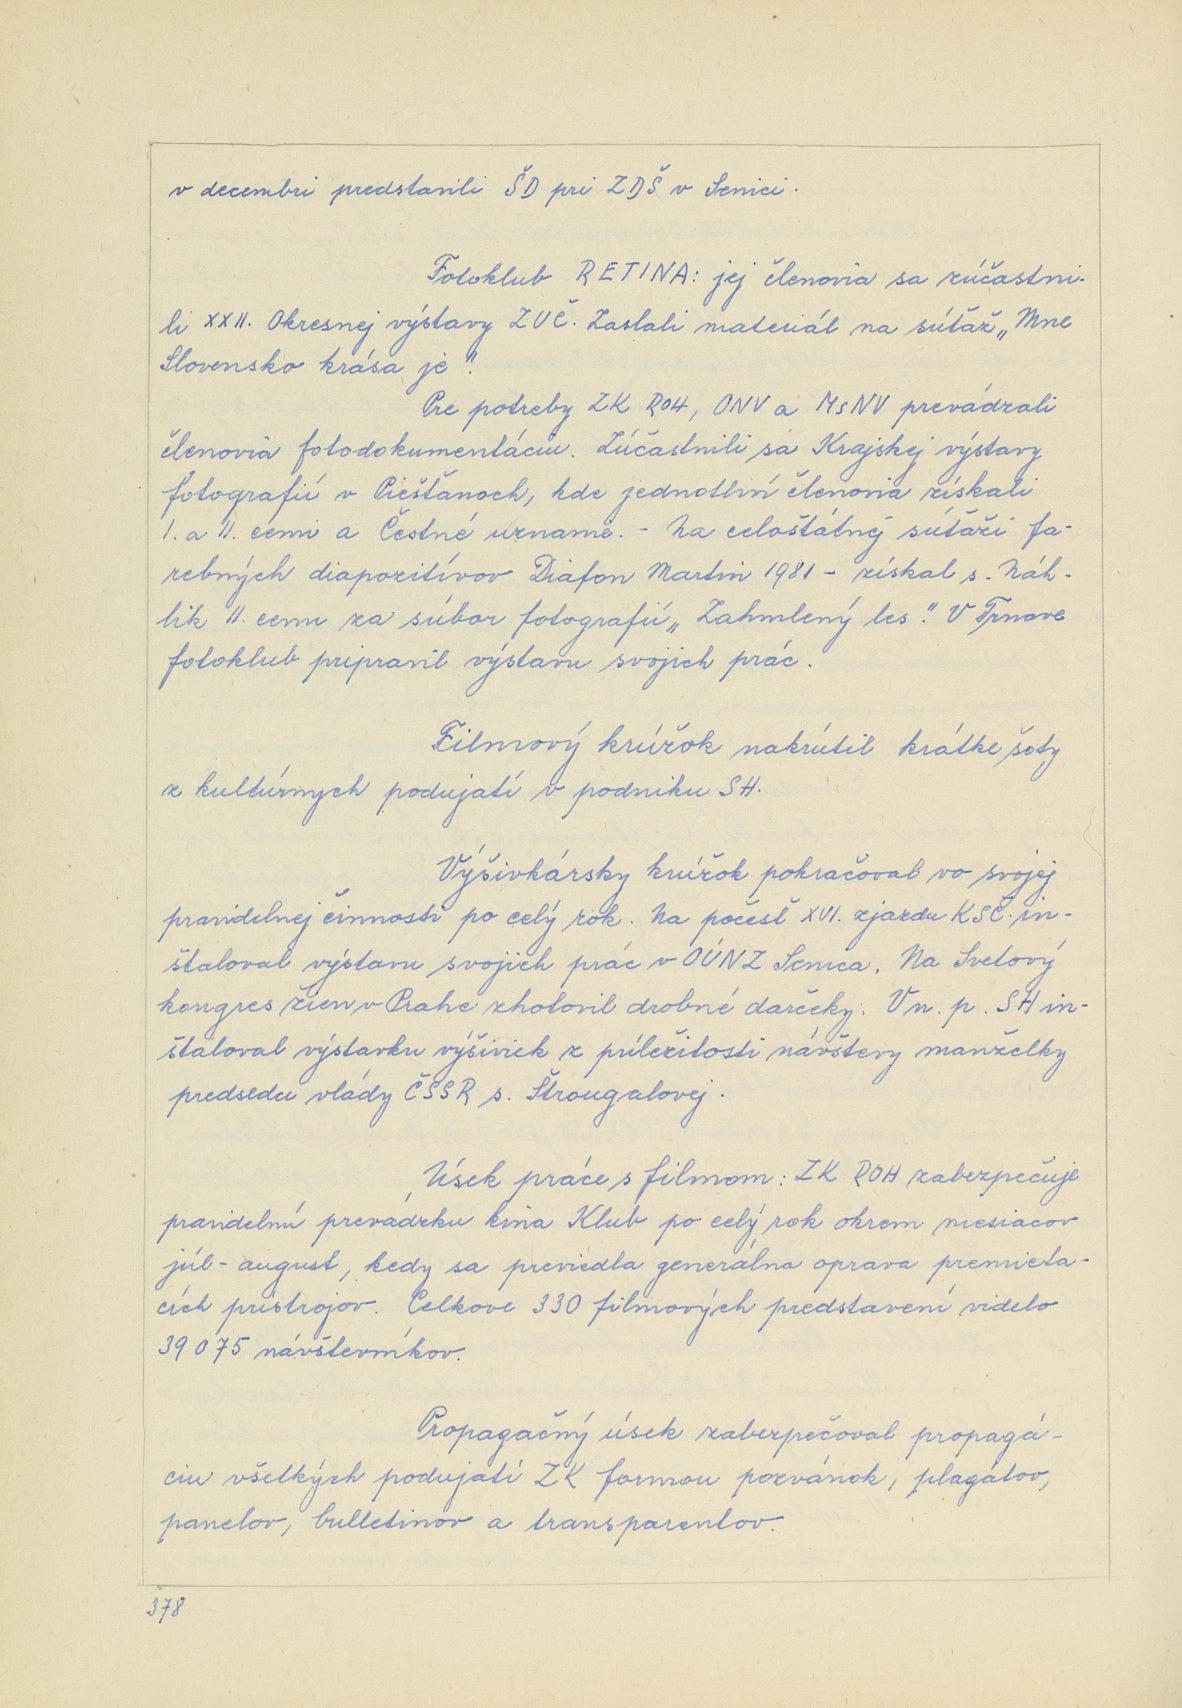 v decembri predstavili ŠD pri ZDŠ v Senici.
Fotoklub RETINA: jej členovia sa zúčastni-
li XXII. Okresnej výstavy ZUČ. Zaslali materiál na súťaž „Mne
Slovensko krása je".
Pre potreby ZK ROH, ONV a MsNV prevádzali
členovia fotodokumentáciu. Zúčastnili sa Krajskej výstavy
fotografií v Piešťanoch, kde jednotliví členovia získali
I. a II. cenu a Čestné uznanie. - Na celoštátnej súťaži fa-
rebných diapozitívov Diafon Martin 1981 - získal s. Náh-
lik II. cenu za súbor fotografií „Zahmlený les". V Trnave
fotoklub pripravil výstavu svojich prác.
Filmový krúžok nakrútil krátke šoty
z kultúrnych podujatí v podniku SH.
Výšivkársky krúžok pokračoval vo svojej
pravidelnej činnosti po celý rok. Na počesť XVI. zjazdu KSČ in-
štaloval výstavu svojich prác v OÚNZ Senica. Na Svetový
kongres žien v Prahe zhotovil drobné darčeky. V n. p. SH in-
štaloval výstavku výšiviek z príležitosti návštevy manželky
predsedu vlády ČSSR s. Štrougalovej.
Úsek práce s filmom: ZK ROH zabezpečuje
pravidelnú prevádzku kina Klub po celý rok okrem mesiacov
júl - august, kedy sa previedla generálna oprava premieta-
cích prístrojov. Celkove 330 filmových predstavení videlo
39 075 návštevníkov.
Propagačný úsek zabezpečoval propagá-
ciu všetkých podujatí ZK formou pozvánok, plagátov,
panelov, bulletinov a transparentov.
378